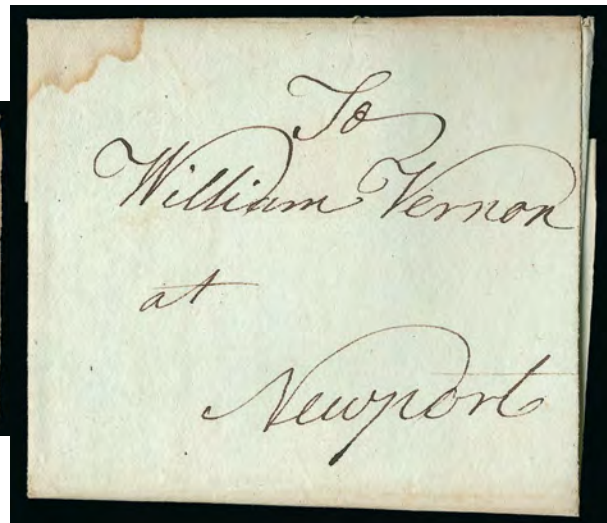 To
William Vernon
at
Newport